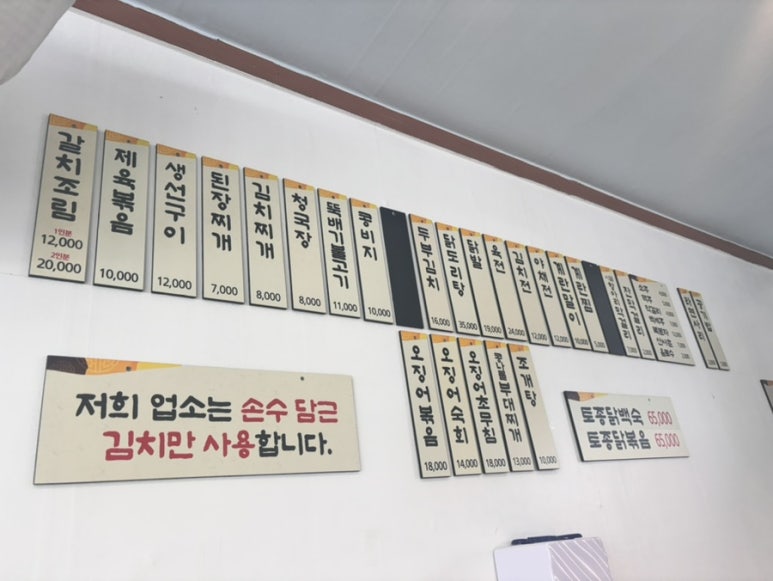 갈치조림
1인분
12,000
2인분
20,000
제육볶음
10,000
생선구이
12,000
된장찌개
7,000
김치찌개
8,000
청국장
8,000
뚝배기불고기
11,000
콩비지
10,000
두부김치
16,000
닭도리탕
35,000
닭발
19,000
육전
24,000
김치전
12,000
야채전
12,000
계란말이
10,000
계란찜
5,000
소주
맥주
막걸리
공기밥
라면사리
오징어볶음
18,000
오징어숙회
14,000
오징어초무침
18,000
콩나물부대찌개
13,000
조개탕
10,000
저희 업소는 손수 담근
김치만 사용합니다.
토종닭백숙 65,000
토종닭볶음 65,000